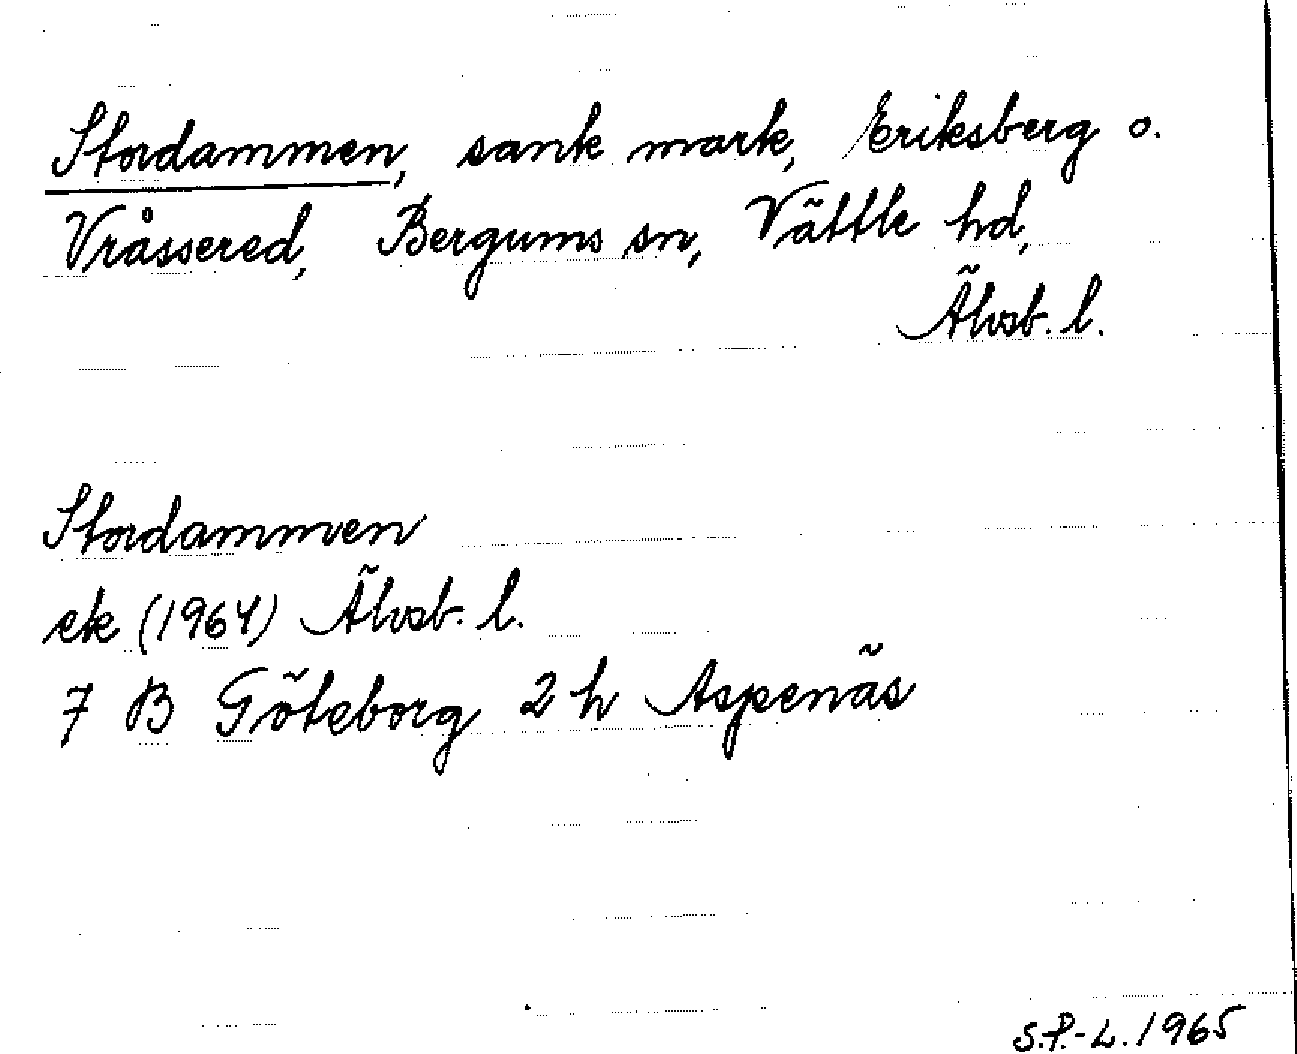 Stordammen, sank mark, Eriksberg o.
Vråssered, Bergums sn, Vättle hd,
Älvsb. l.
Stordammen
ek (1964) Älvsb. l.
7 B Göteborg 2 h Aspenäs
S.P.-L. 1965